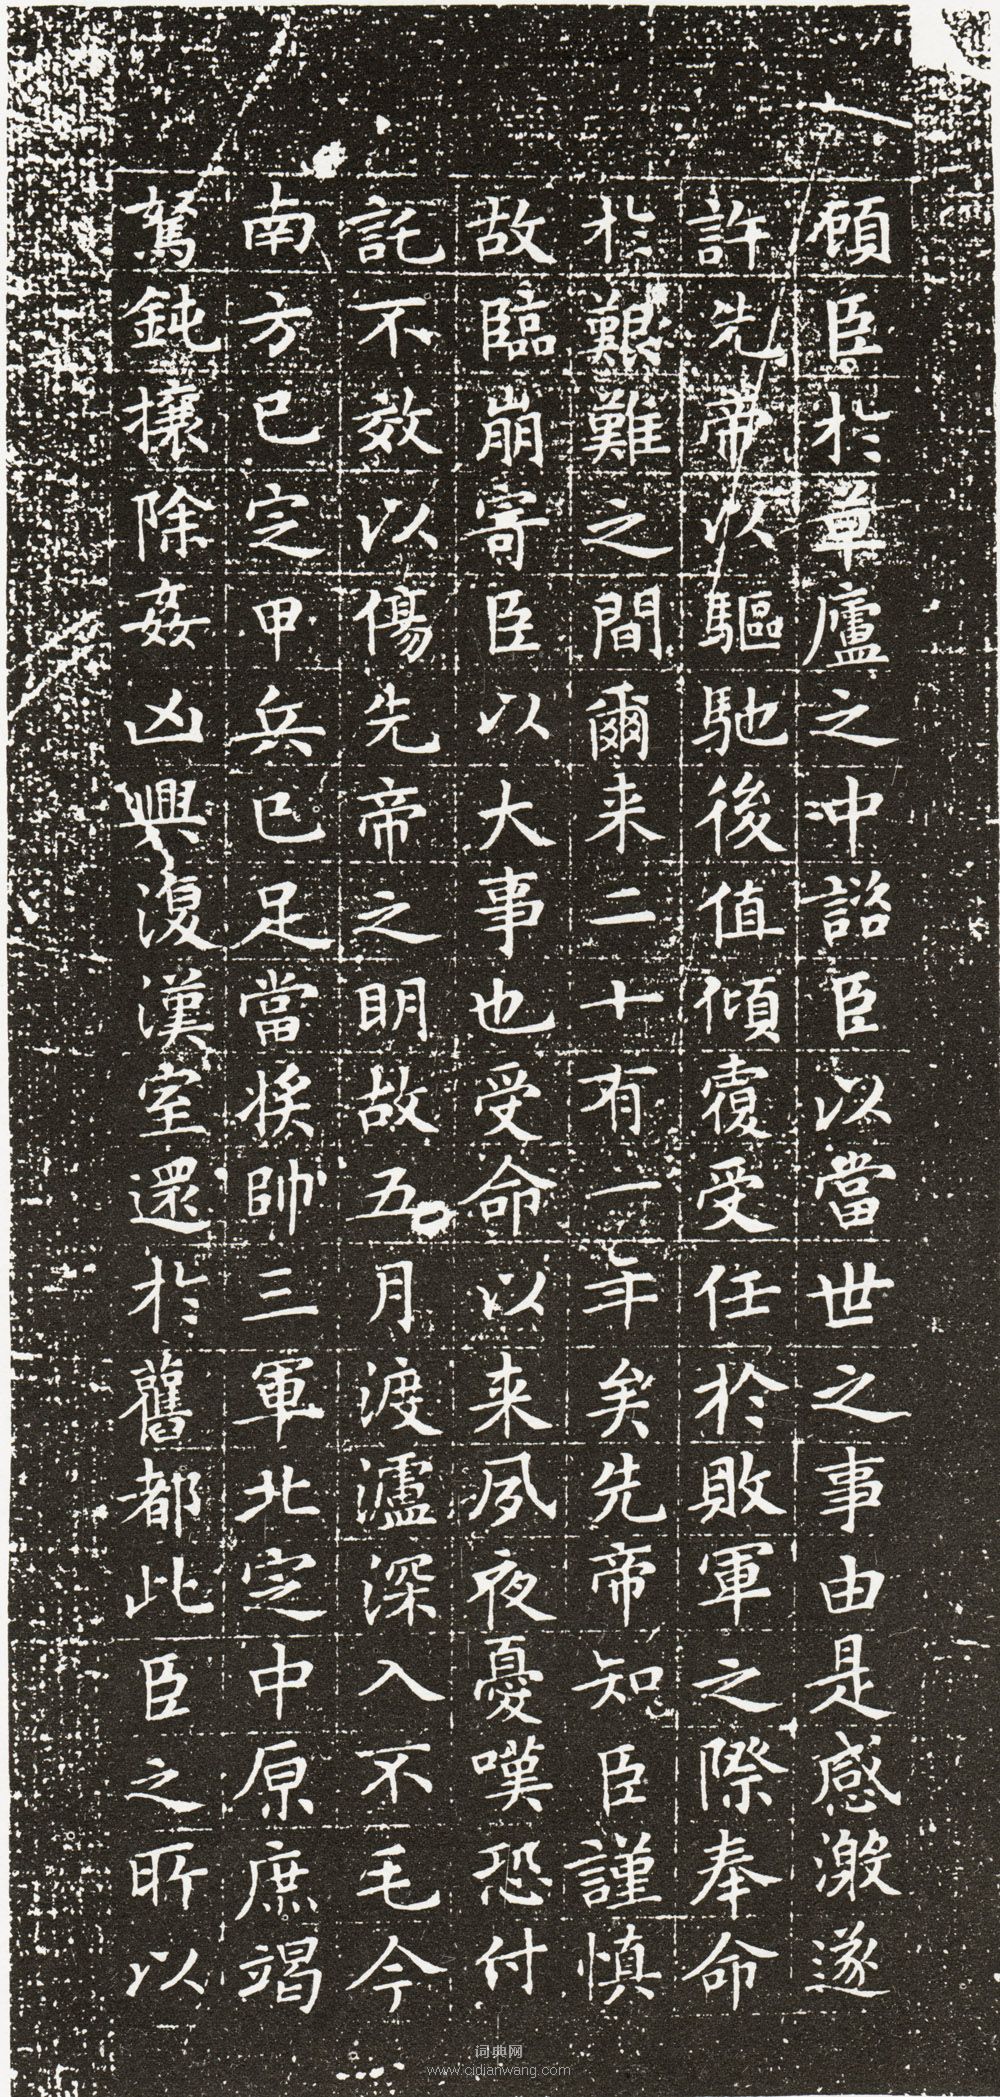 顧臣於草廬之中諮臣以當世之事由是感激遂
許先帝以驅馳後值傾覆受任於敗軍之際奉命
於艱難之間爾来二十有一年矣先帝知臣謹慎
故臨崩寄臣以大事也受命以来夙夜憂嘆恐付
託不效以傷先帝之明故五月渡瀘深入不毛今
南方已定甲兵已足當將帥三軍北定中原庶竭
駑鈍攘除姦凶興復漢室還於舊都此臣之所以
词典网
www.cidianwang.com